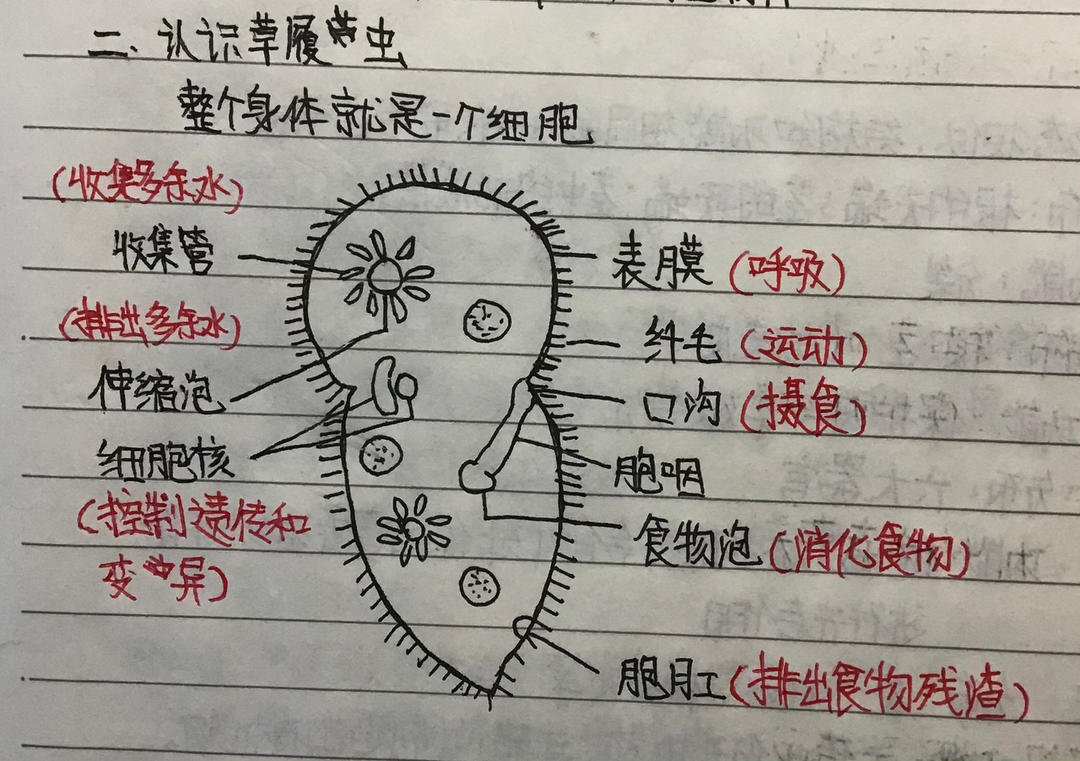 二、认识草履虫
整个身体就是一个细胞
(收集多余水)
收集管
(排出多余水)
伸缩泡
细胞核
(控制遗传和
变异)
表膜(呼吸)
纤毛(运动)
口沟(摄食)
胞咽
食物泡(消化食物)
胞肛(排出食物残渣)